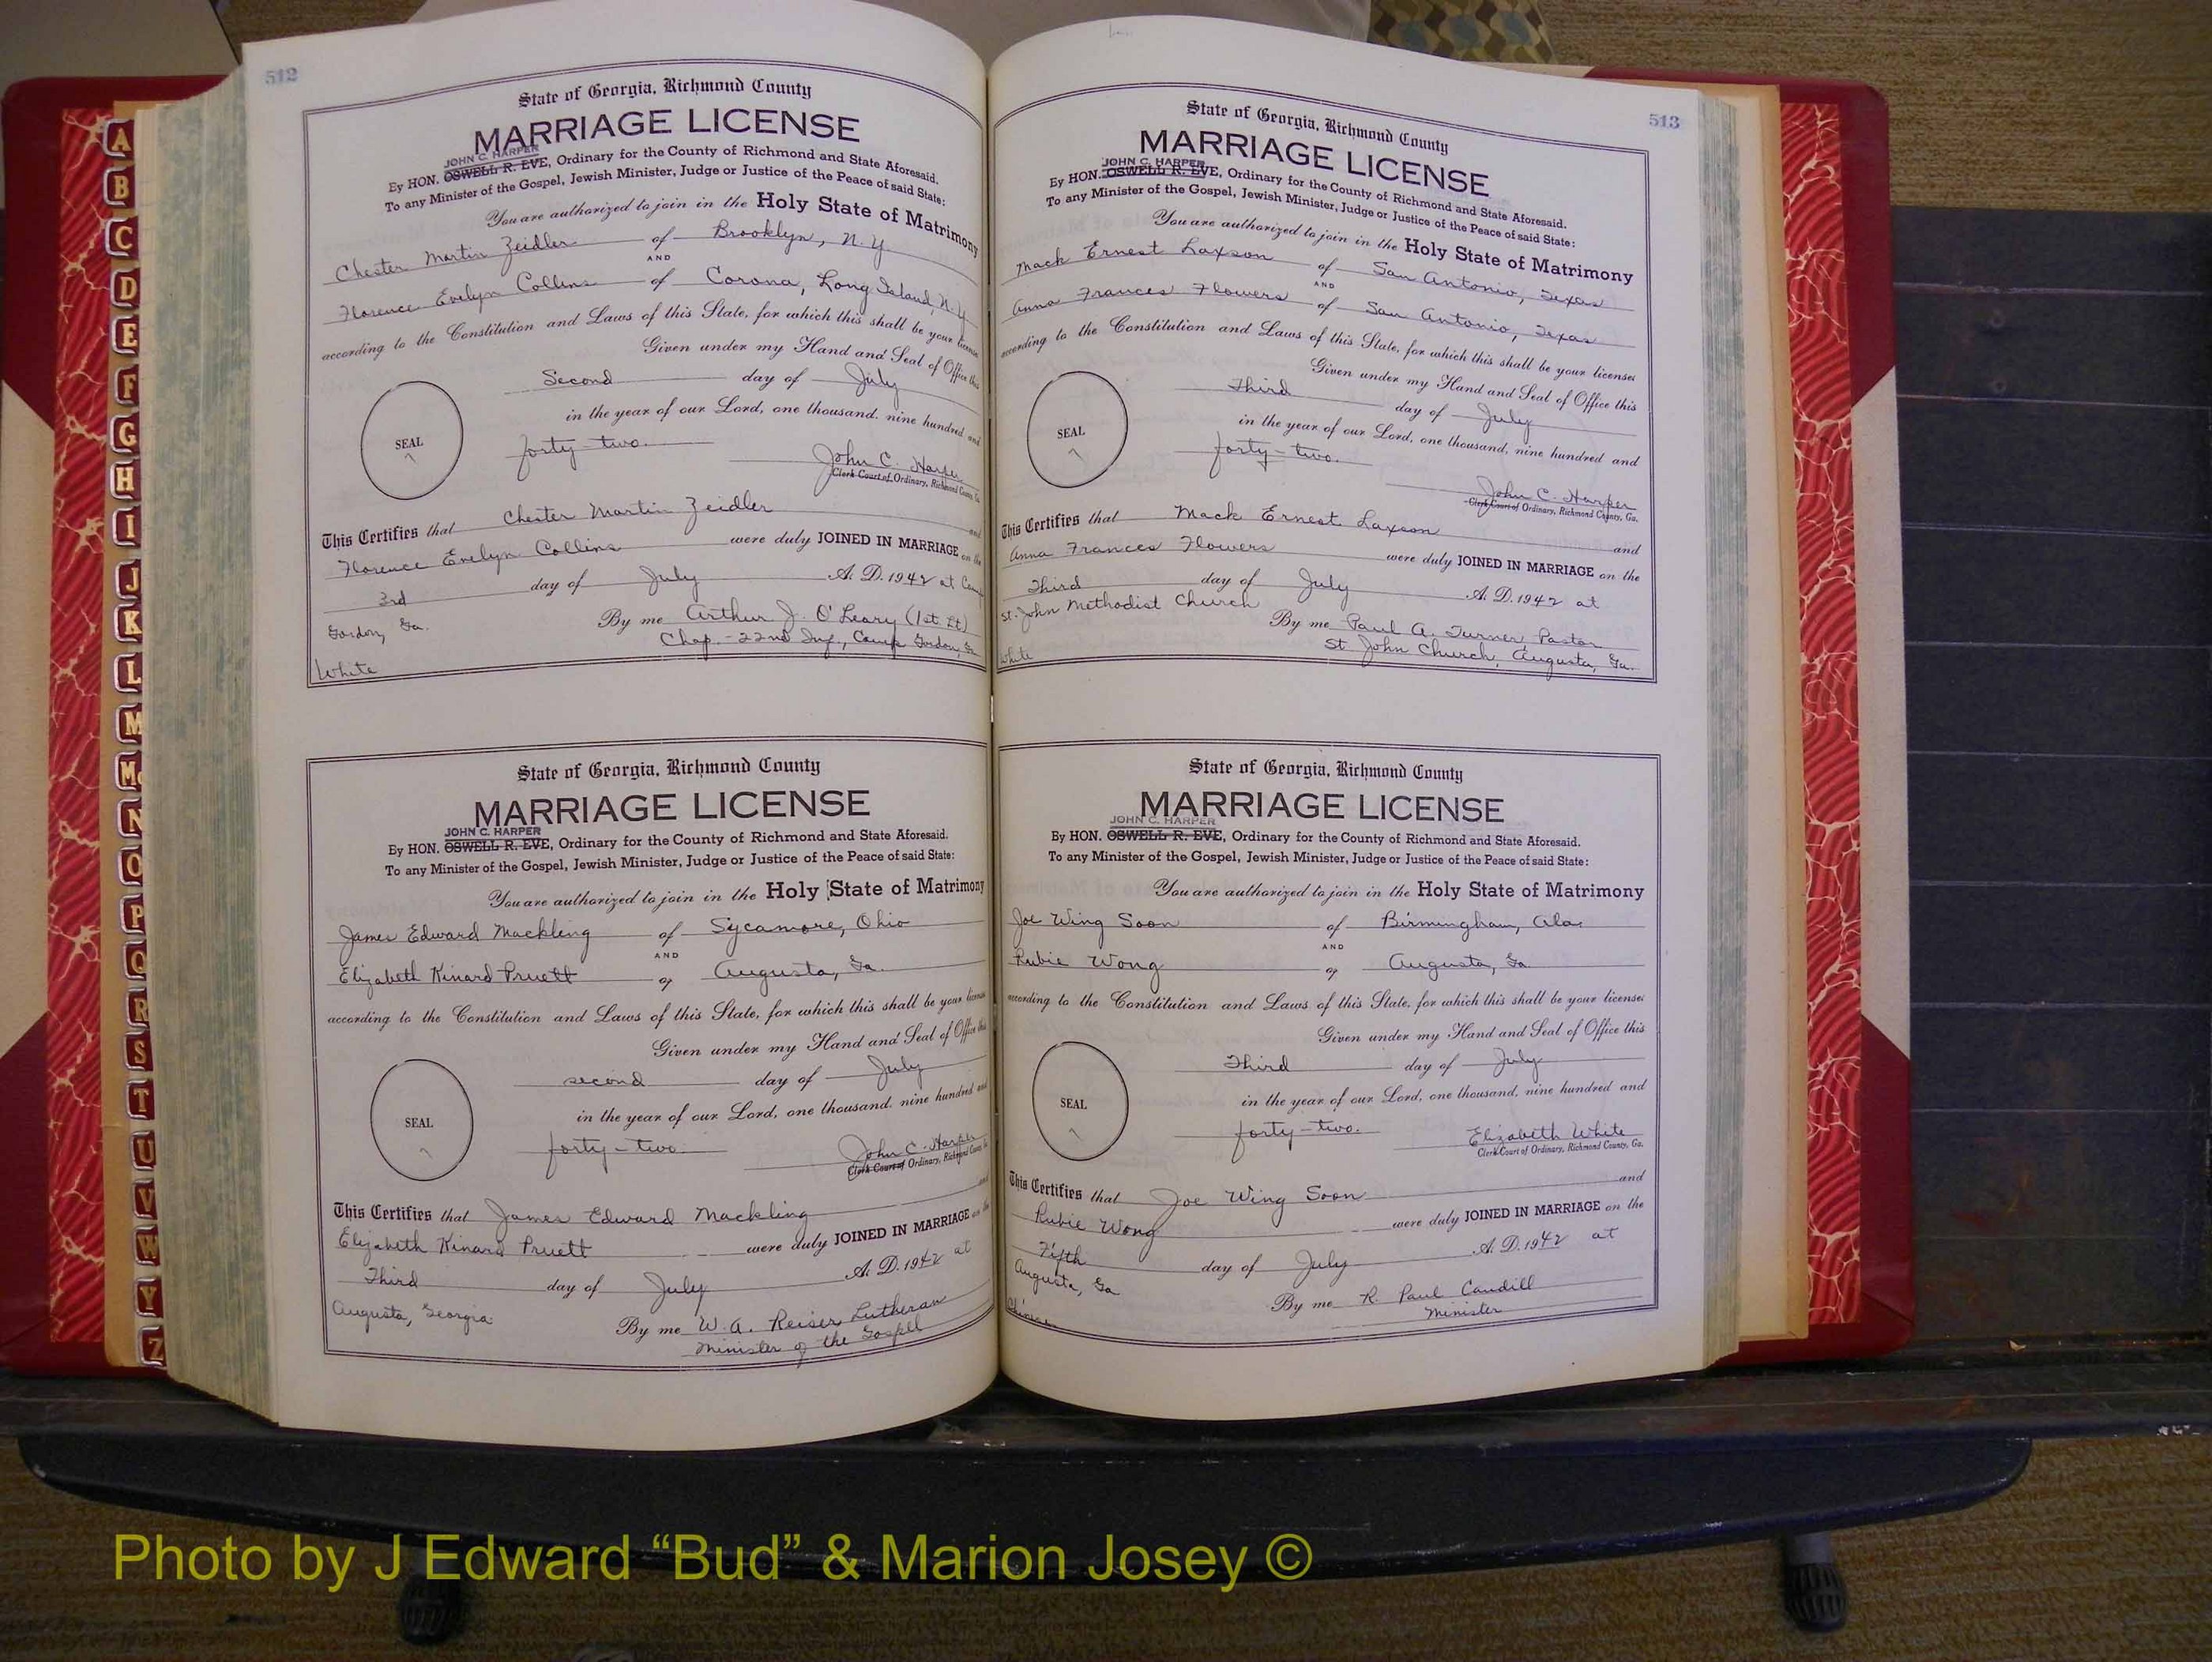 512
State of Georgia, Richmond County
MARRIAGE LICENSE
JOHN C. HARPER
By HON. OSWELL R. EVE, Ordinary for the County of Richmond and State Aforesaid.
To any Minister of the Gospel, Jewish Minister, Judge or Justice of the Peace of said State:
You are authorized to join in the Holy State of Matrimony
Chester Martin Zeidler of Brooklyn, N.Y
AND
Florence Evelyn Collins of Corona, Long Island, N.Y
according to the Constitution and Laws of this State, for which this shall be your license
Given under my Hand and Seal of Office this
Second day of July
in the year of our Lord, one thousand, nine hundred and
SEAL
forty-two.
John C. Harper
Clerk Court of Ordinary, Richmond County, Ga.
This Certifies that Chester Martin Zeidler and
Florence Evelyn Collins were duly JOINED IN MARRIAGE on the
3rd day of July A. D. 1942 at Camp
Gordon, Ga. By me Arthur J. O'Leary (1st. Lt)
Chap. - 22nd Inf., Camp Gordon, Ga
White
State of Georgia, Richmond County
MARRIAGE LICENSE
JOHN C. HARPER
By HON. OSWELL R. EVE, Ordinary for the County of Richmond and State Aforesaid.
To any Minister of the Gospel, Jewish Minister, Judge or Justice of the Peace of said State:
You are authorized to join in the Holy State of Matrimony
James Edward Mackling of Sycamore, Ohio
AND
Elizabeth Kinard Pruett of Augusta, Ga.
according to the Constitution and Laws of this State, for which this shall be your license
Given under my Hand and Seal of Office this
second day of July
in the year of our Lord, one thousand, nine hundred and
SEAL
forty-two.
John C. Harper
Clerk Court of Ordinary, Richmond County, Ga.
This Certifies that James Edward Mackling and
Elizabeth Kinard Pruett were duly JOINED IN MARRIAGE on the
Third day of July A. D. 1942 at
Augusta, Georgia By me W. A. Reiser, Lutheran
Minister of the Gospel
513
State of Georgia, Richmond County
MARRIAGE LICENSE
JOHN C. HARPER
By HON. OSWELL R. EVE, Ordinary for the County of Richmond and State Aforesaid.
To any Minister of the Gospel, Jewish Minister, Judge or Justice of the Peace of said State:
You are authorized to join in the Holy State of Matrimony
Mack Ernest Laxson of San Antonio, Texas
AND
Anna Frances Flowers of San Antonio, Texas
according to the Constitution and Laws of this State, for which this shall be your license:
Given under my Hand and Seal of Office this
Third day of July
in the year of our Lord, one thousand, nine hundred and
SEAL
forty-two.
John C. Harper
Clerk Court of Ordinary, Richmond County, Ga.
This Certifies that Mack Ernest Laxson and
Anna Frances Flowers were duly JOINED IN MARRIAGE on the
Third day of July A. D. 1942 at
St. John Methodist Church By me Paul A. Turner Pastor
St John Church, Augusta, Ga.
White
State of Georgia, Richmond County
MARRIAGE LICENSE
JOHN C. HARPER
By HON. OSWELL R. EVE, Ordinary for the County of Richmond and State Aforesaid.
To any Minister of the Gospel, Jewish Minister, Judge or Justice of the Peace of said State:
You are authorized to join in the Holy State of Matrimony
Joe Wing Soon of Birmingham, Ala.
AND
Rubie Wong of Augusta, Ga.
according to the Constitution and Laws of this State, for which this shall be your license:
Given under my Hand and Seal of Office this
Third day of July
in the year of our Lord, one thousand, nine hundred and
SEAL
forty-two.
Elizabeth White
Clerk Court of Ordinary, Richmond County, Ga.
This Certifies that Joe Wing Soon and
Rubie Wong were duly JOINED IN MARRIAGE on the
Fifth day of July A. D. 1942 at
Augusta, Ga By me R. Paul Caudill
Minister
Chinese
A
B
C
D
E
F
G
H
I
J
K
L
M
Mc
N
O
P
Q
R
S
T
U
V
W
Y
Z
Photo by J Edward “Bud” & Marion Josey ©